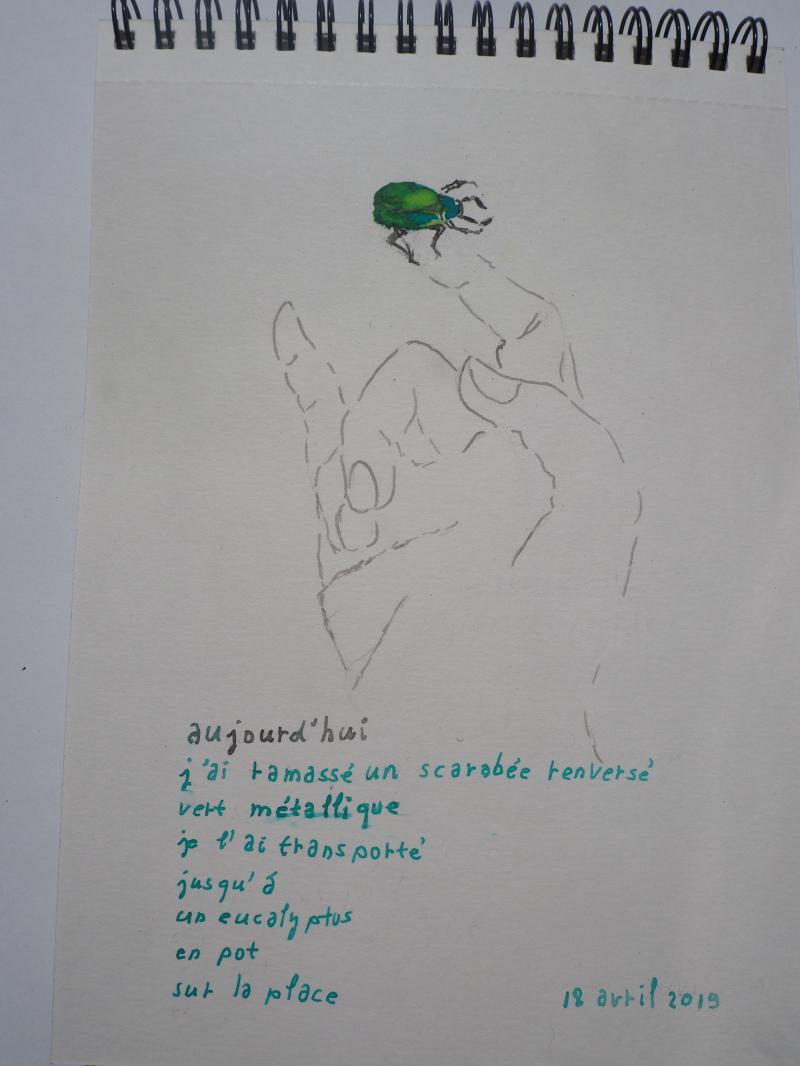 aujourd'hui
j'ai ramassé un scarabée renversé
vert métallique
je l'ai transporté
jusqu'à
un eucalyptus
en pot
sur la place
18 avril 2019